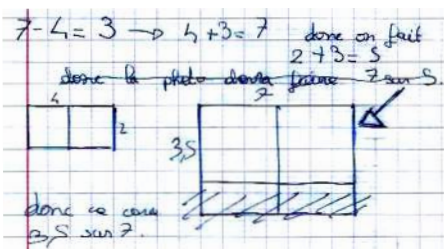 7-4=3 → 4+3=7 donc on fait
2+3=5
donc la photo devra faire 7 sur 5
4
7
2
3,5
donc ce sera
3,5 sur 7.